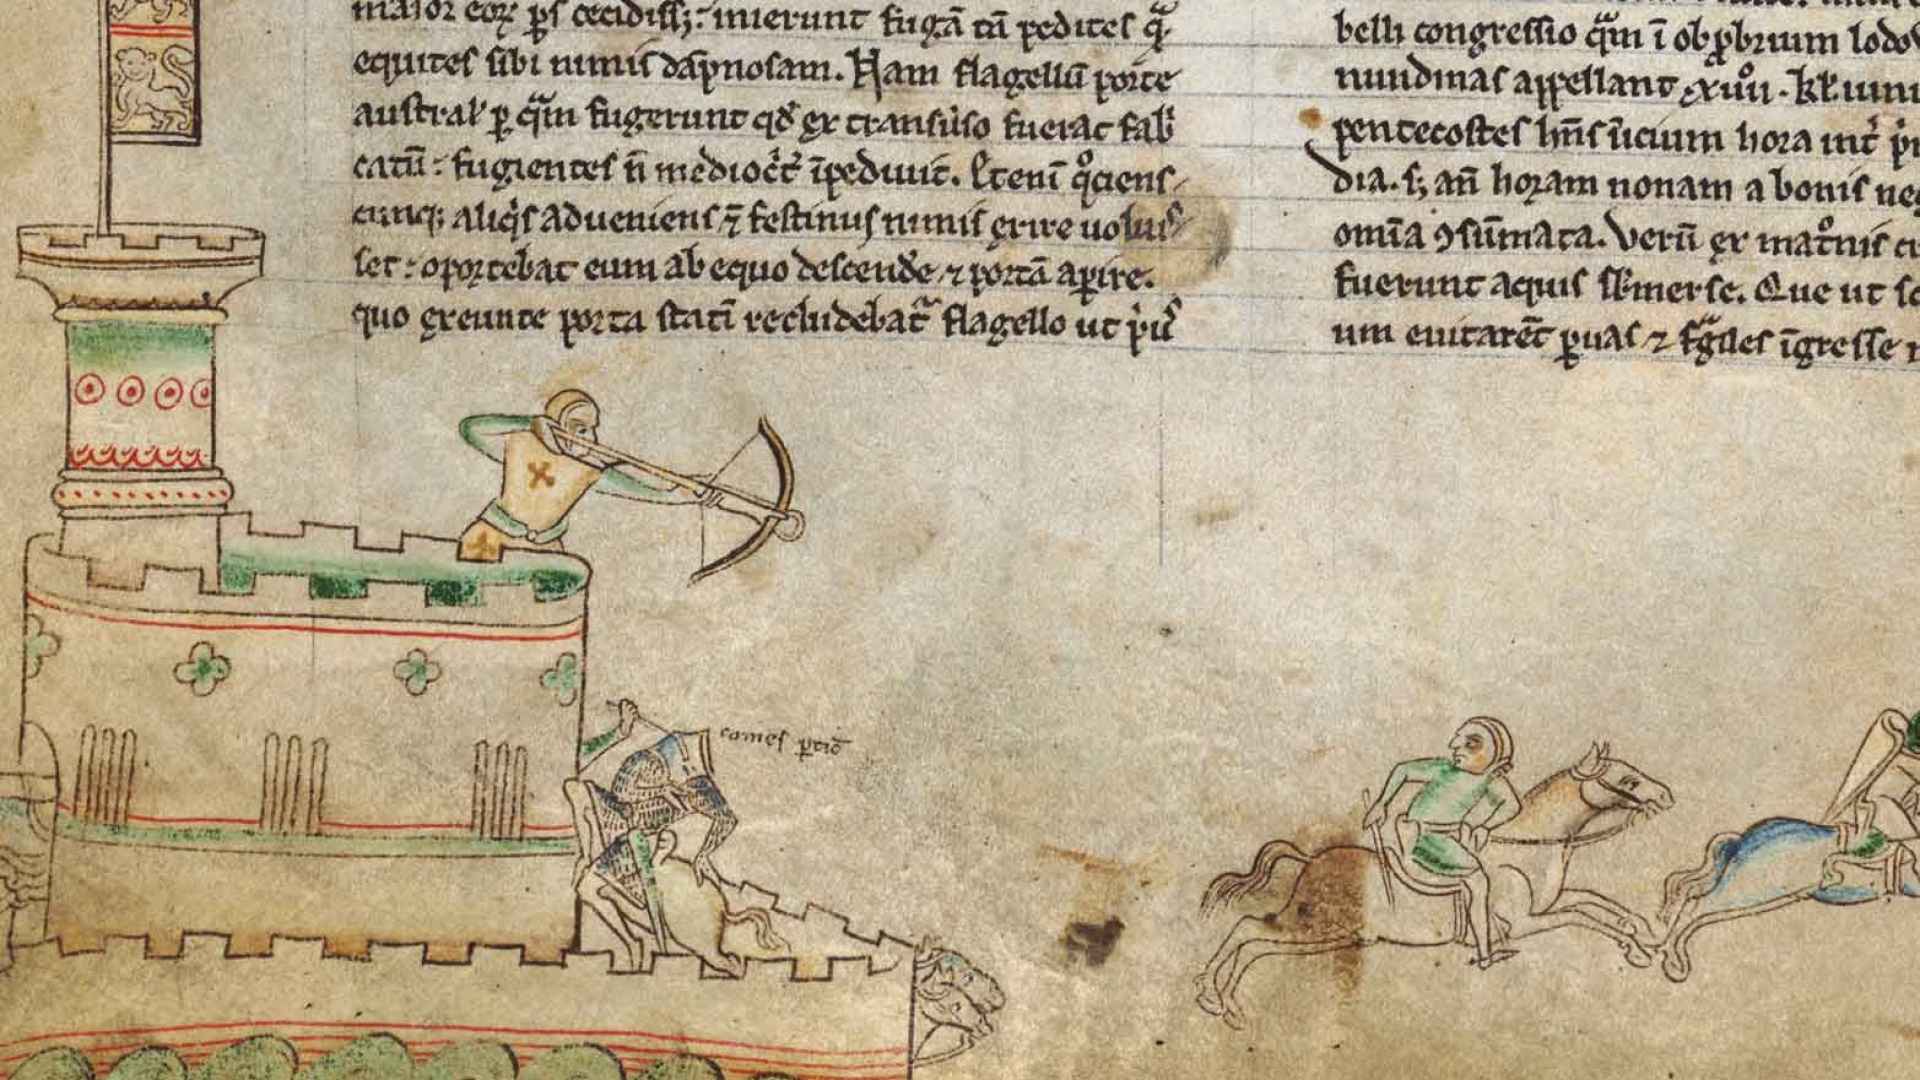 maior eoꝝ ps cecidiss; inierunt fugā tā pedites q̄
equites sibi nimis dāpnosam. Nam flagellū porte
austral' ꝑ quā fugerunt qd ex transuso fuerat fab
catū: fugientes n̄ mediocͥt īpediuit. Etenī qͦciens
cunq; aliqͥs adueniens ⁊ festinus nimis exire uoluis
set: oportebat eum ab equo descendē ⁊ portā apire.
quo exeunte porta statī recludebat flagello ut pͥus
comes ꝑticͦ
belli congressio quā ī obprobrium lodo
nundinas appellant xiiii. kł iuni
pentecostes hn̄s inicium hora int̄ pͥ
dia. s; an̄ horam nonam a bonis neg
omīa ꝯsūmata. Verū ex matͦnis
fuerunt aquis sbmerse. Que ut sc
um euitarēt ꝑuas ⁊ fͣgiles īgresse n